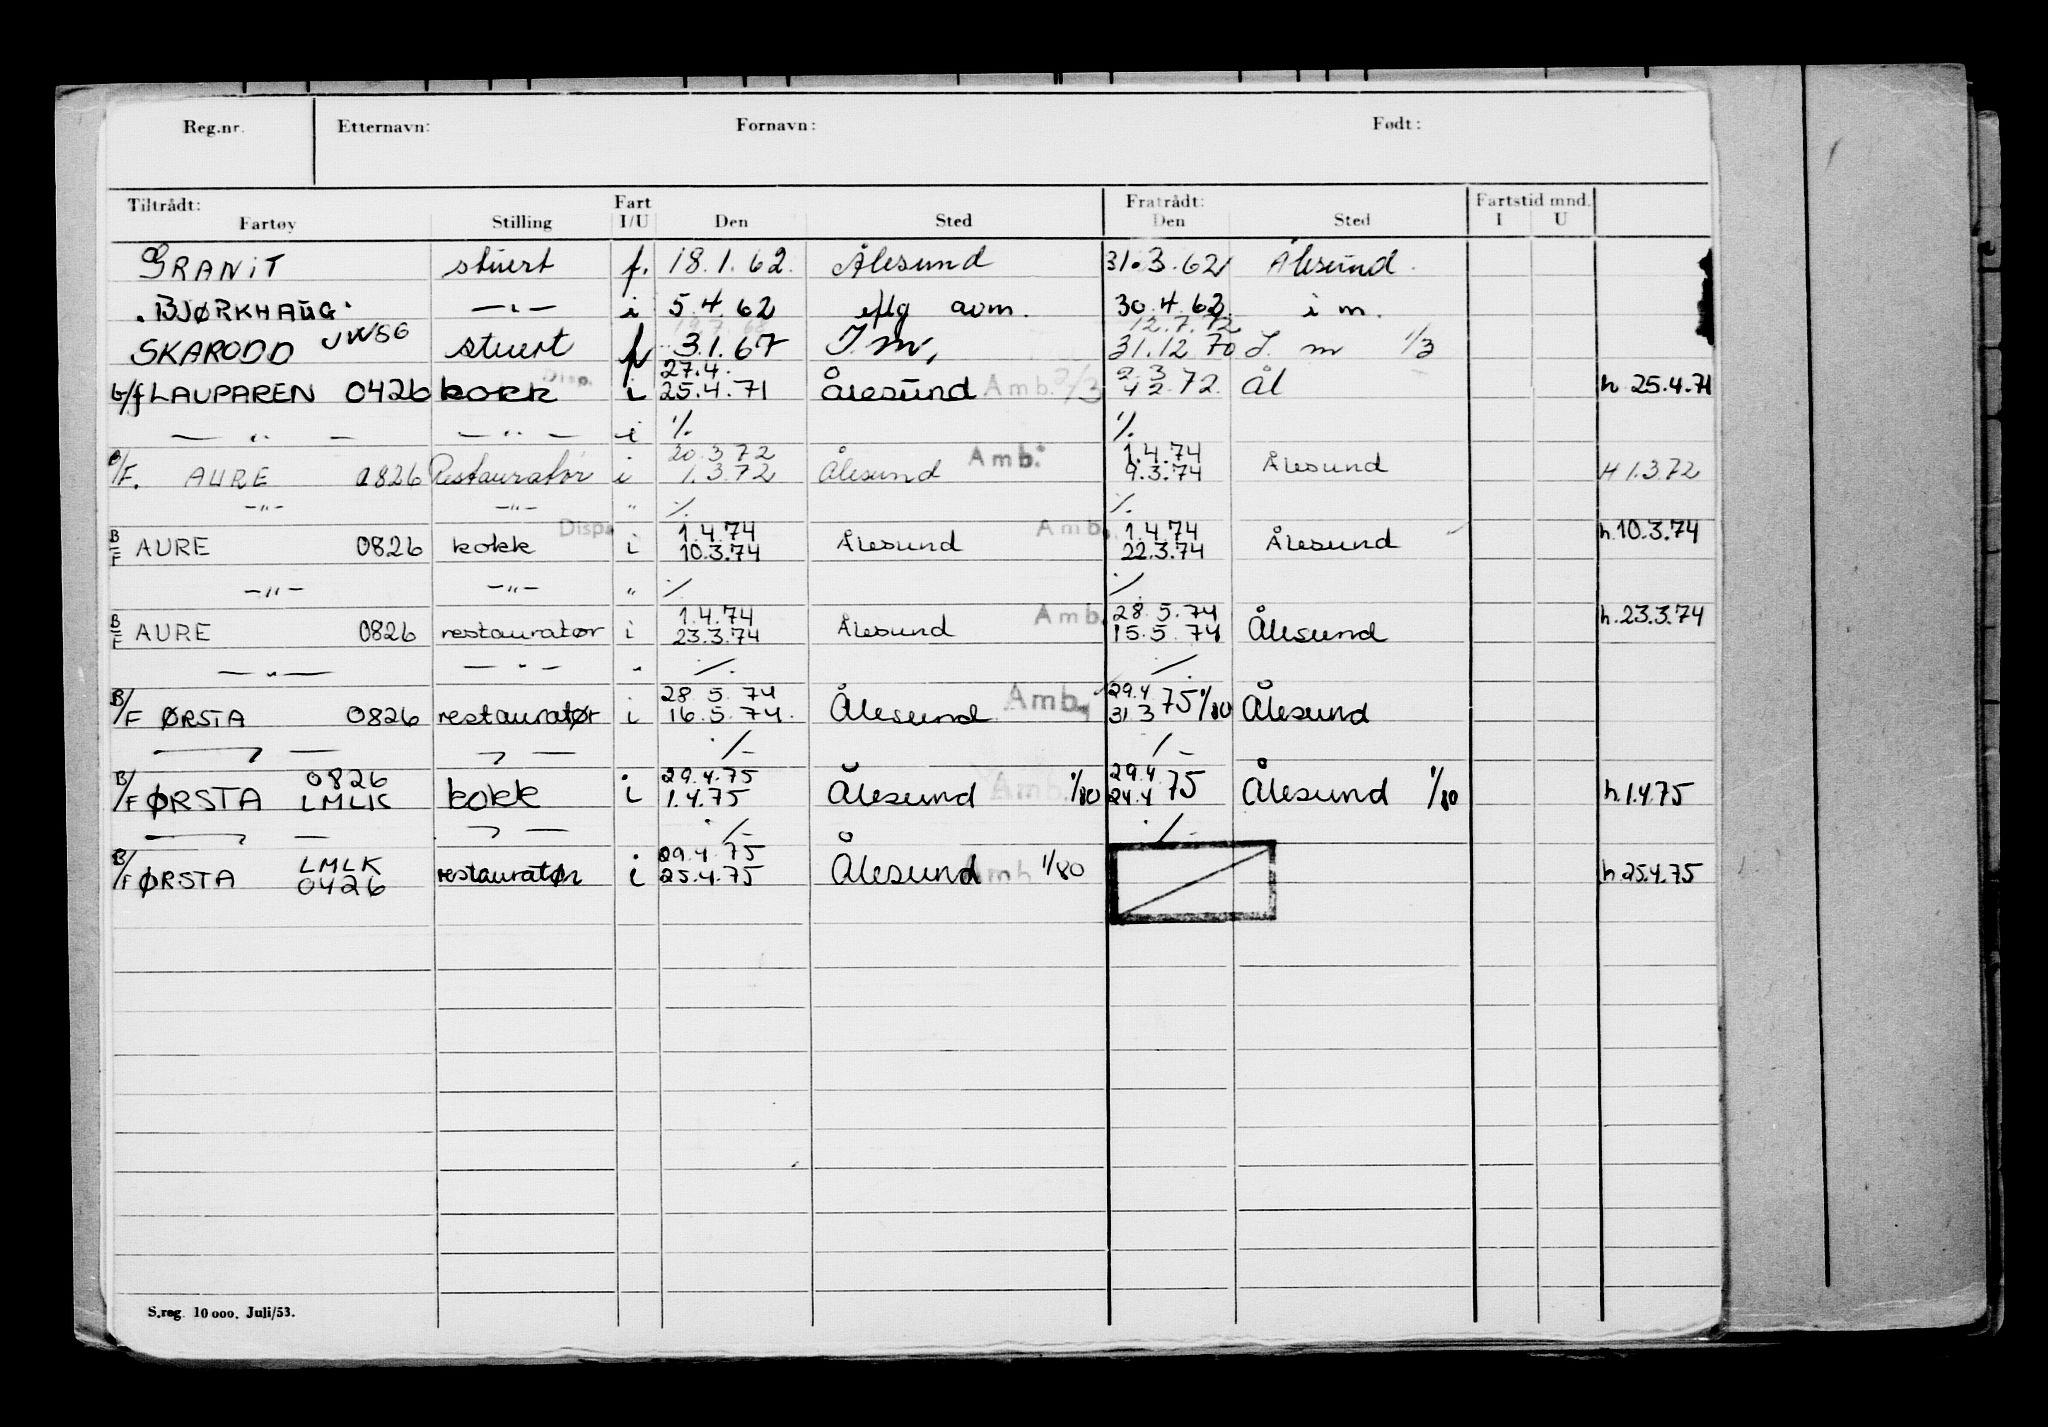 Reg.nr. Etternavn: Fornavn: Født:
Tiltrådt: Fart Fratrådt: Fartstid mnd.
Fartøy Stilling I/U Den Sted Den Sted I U
GRANIT stuert f. 18.1.62. Ålesund 31.3.62 Ålesund.
BJØRKHAUG. —"— i 5.4.62 eflg aom. 30.4.62 i m.
19.7.68 12.7.72
SKARODD JWSG stuert f 3.1.67 I m, 31.12 70 I. m 1/3
Disp. 27.4. Amb. 2/3 2.3
b/f LAUPAREN 0426 kokk i 25.4.71 Ålesund 4 2.72. Ål h 25.4.71
— " — — " — i ·/. ·/.
20.3 72 Amb. 1.4.74
B/F. AURE 0826 Restauratør i 1.3.72 Ålesund 9.3.74 Ålesund H 1.3.72
—"— —"— " ·/. ·/.
Disp. 1.4.74 Amb. 1.4.74
B/F AURE 0826 kokk i 10.3.74 Ålesund 22.3.74 Ålesund h.10.3.74
—"— —"— " ·/. ·/.
1.4.74 Amb. 28.5.74
B/F AURE 0826 restauratør i 23.3.74 Ålesund 15.5.74 Ålesund h.23.3.74
—"— —"— " ·/. ·/.
28.5.74 Amb. 29.4
B/F ØRSTA 0826 restauratør i 16.5.74. Ålesund 31 3 75 1/80 Ålesund
·/- ·/-
0826 29.4.75 Amb. 29.4
B/F ØRSTA LMLK kokk i 1.4.75 Ålesund 1/80 24.4 75 Ålesund 1/80 h.1.4.75
·/- ·/-
LMLK 29.4.75
B/F ØRSTA 0426 restauratør i 25.4.75 Ålesund Amb 1/80 h.25.4.75
S.reg. 10 000. Juli/53.